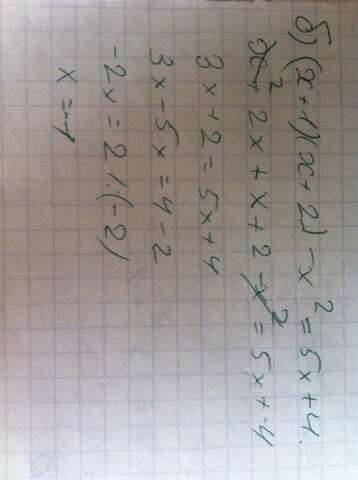 б) (x+1)(x+2)-x²=5x+4.
x²+2x+x+2-x²=5x+4
3x+2=5x+4
3x-5x=4-2
-2x=2 |:(-2)
x=-1